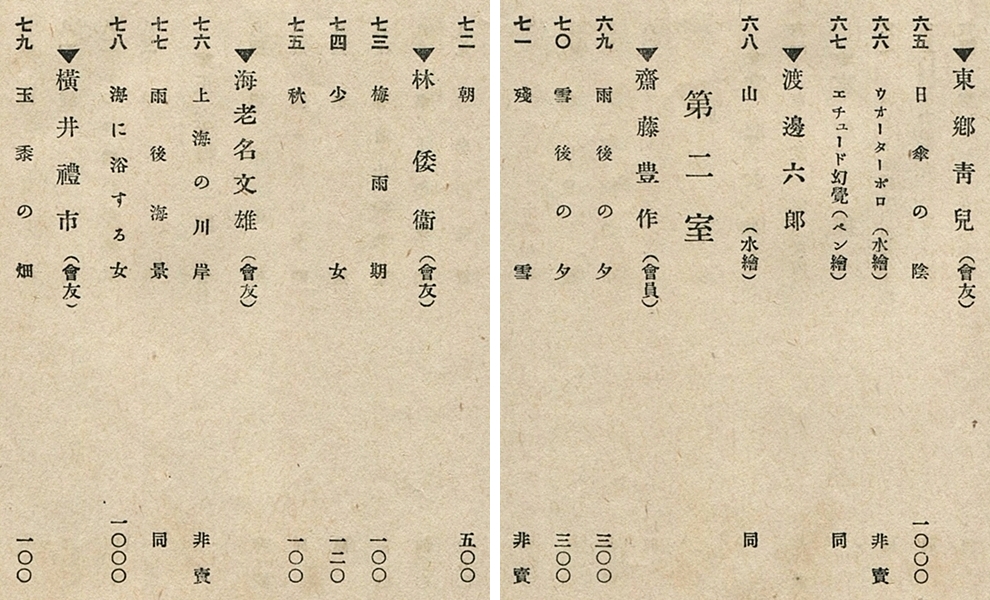 ▼東鄕靑兒(會友)
六五 日傘の陰 一〇〇〇
六六 ウオーターポロ(水繪) 非賣
六七 エチュード幻覺(ペン繪) 同
▼渡邊六郎
六八 山(水繪) 同
第二室
▼齋藤豊作(會員)
六九 雨後の夕 三〇〇
七〇 雪後の夕 三〇〇
七一 殘雪 非賣
七二 朝 五〇〇
▼林倭衞(會友)
七三 梅雨期 一〇〇
七四 少女 一二〇
七五 秋 一〇〇
▼海老名文雄(會友)
七六 上海の川岸 非賣
七七 雨後海景 同
七八 海に浴する女 一〇〇〇
▼橫井禮市(會友)
七九 玉黍の畑 一〇〇